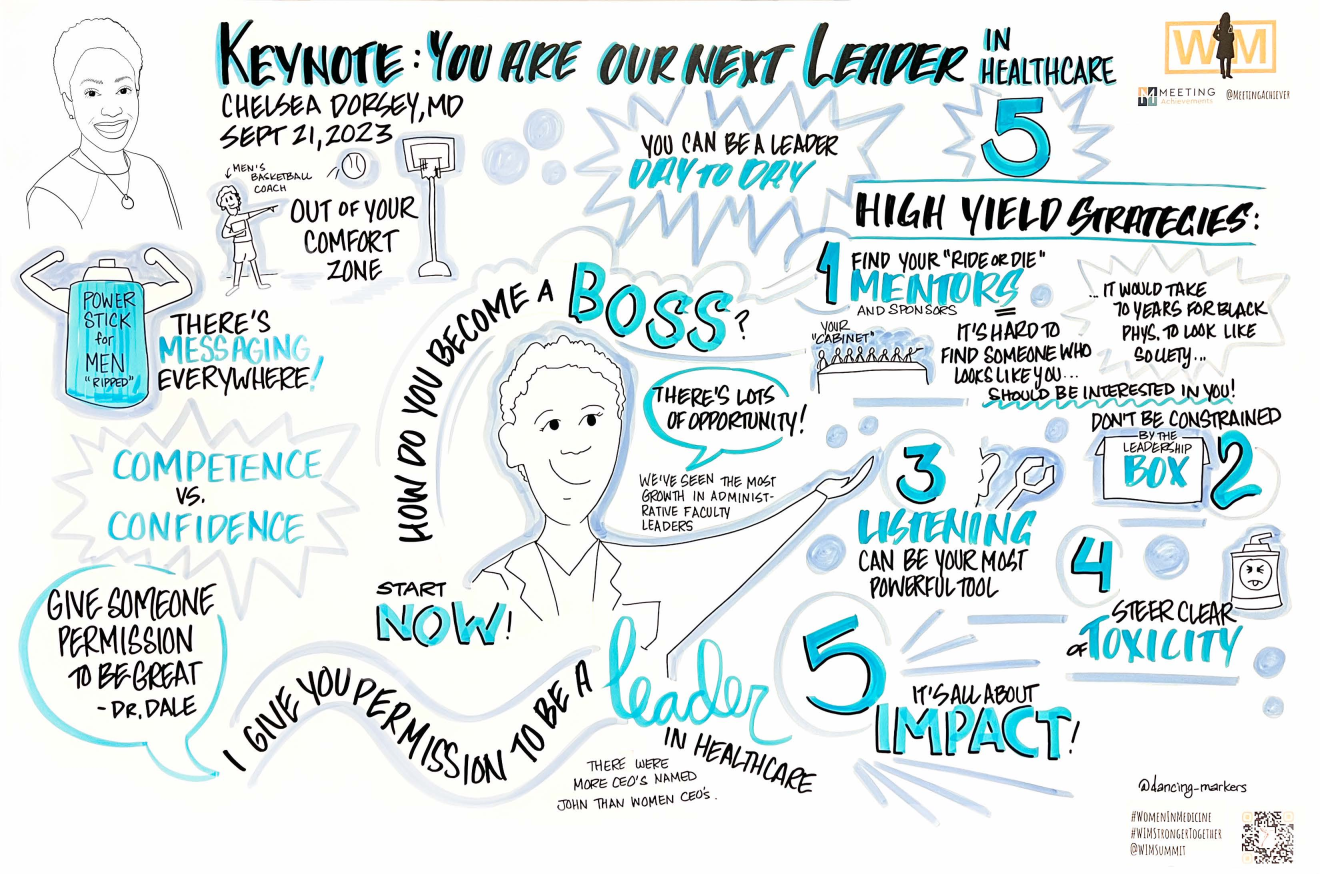 KEYNOTE: YOU ARE OUR NEXT LEADER IN HEALTHCARE
CHELSEA DORSEY, MD
SEPT 21, 2023
WIM
MEETING
Achievements
@MEETINGACHIEVER
MEN'S
BASKETBALL
COACH
OUT OF YOUR
COMFORT
ZONE
YOU CAN BE A LEADER
DAY TO DAY
POWER
STICK
for
MEN
"RIPPED"
THERE'S
MESSAGING
EVERYWHERE!
COMPETENCE
VS.
CONFIDENCE
GIVE SOMEONE
PERMISSION
TO BE GREAT
- DR. DALE
HOW DO YOU BECOME A BOSS?
THERE'S LOTS
OF OPPORTUNITY!
WE'VE SEEN THE MOST
GROWTH IN ADMINIST-
RATIVE FACULTY
LEADERS
START
NOW!
I GIVE YOU PERMISSION TO BE A leader
IN HEALTHCARE
THERE WERE
MORE CEO'S NAMED
JOHN THAN WOMEN CEO'S.
5
HIGH YIELD STRATEGIES:
1 FIND YOUR "RIDE OR DIE"
MENTORS
AND SPONSORS
YOUR
"CABINET"
IT'S HARD TO
FIND SOMEONE WHO
LOOKS LIKE YOU...
SHOULD BE INTERESTED IN YOU!
...IT WOULD TAKE
70 YEARS FOR BLACK
PHYS. TO LOOK LIKE
SOCIETY...
DON'T BE CONSTRAINED
BY THE
LEADERSHIP
BOX
2
3
LISTENING
CAN BE YOUR MOST
POWERFUL TOOL
4
STEER CLEAR
OF TOXICITY
5
IT'S ALL ABOUT
IMPACT!
@dancing-markers
#WOMENINMEDICINE
#WIMSTRONGERTOGETHER
@WIMSUMMIT